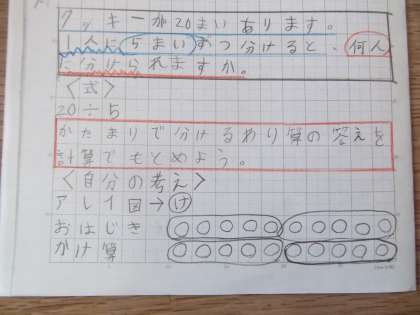 クッキーが20まいあります。
1人に5まいずつ分けると、何人
に分けられますか。
<式>
20÷5
かたまりで分けるわり算の答えを
計算でもとめよう。
<自分の考え>
アレイ図→け
おはじき
かけ算